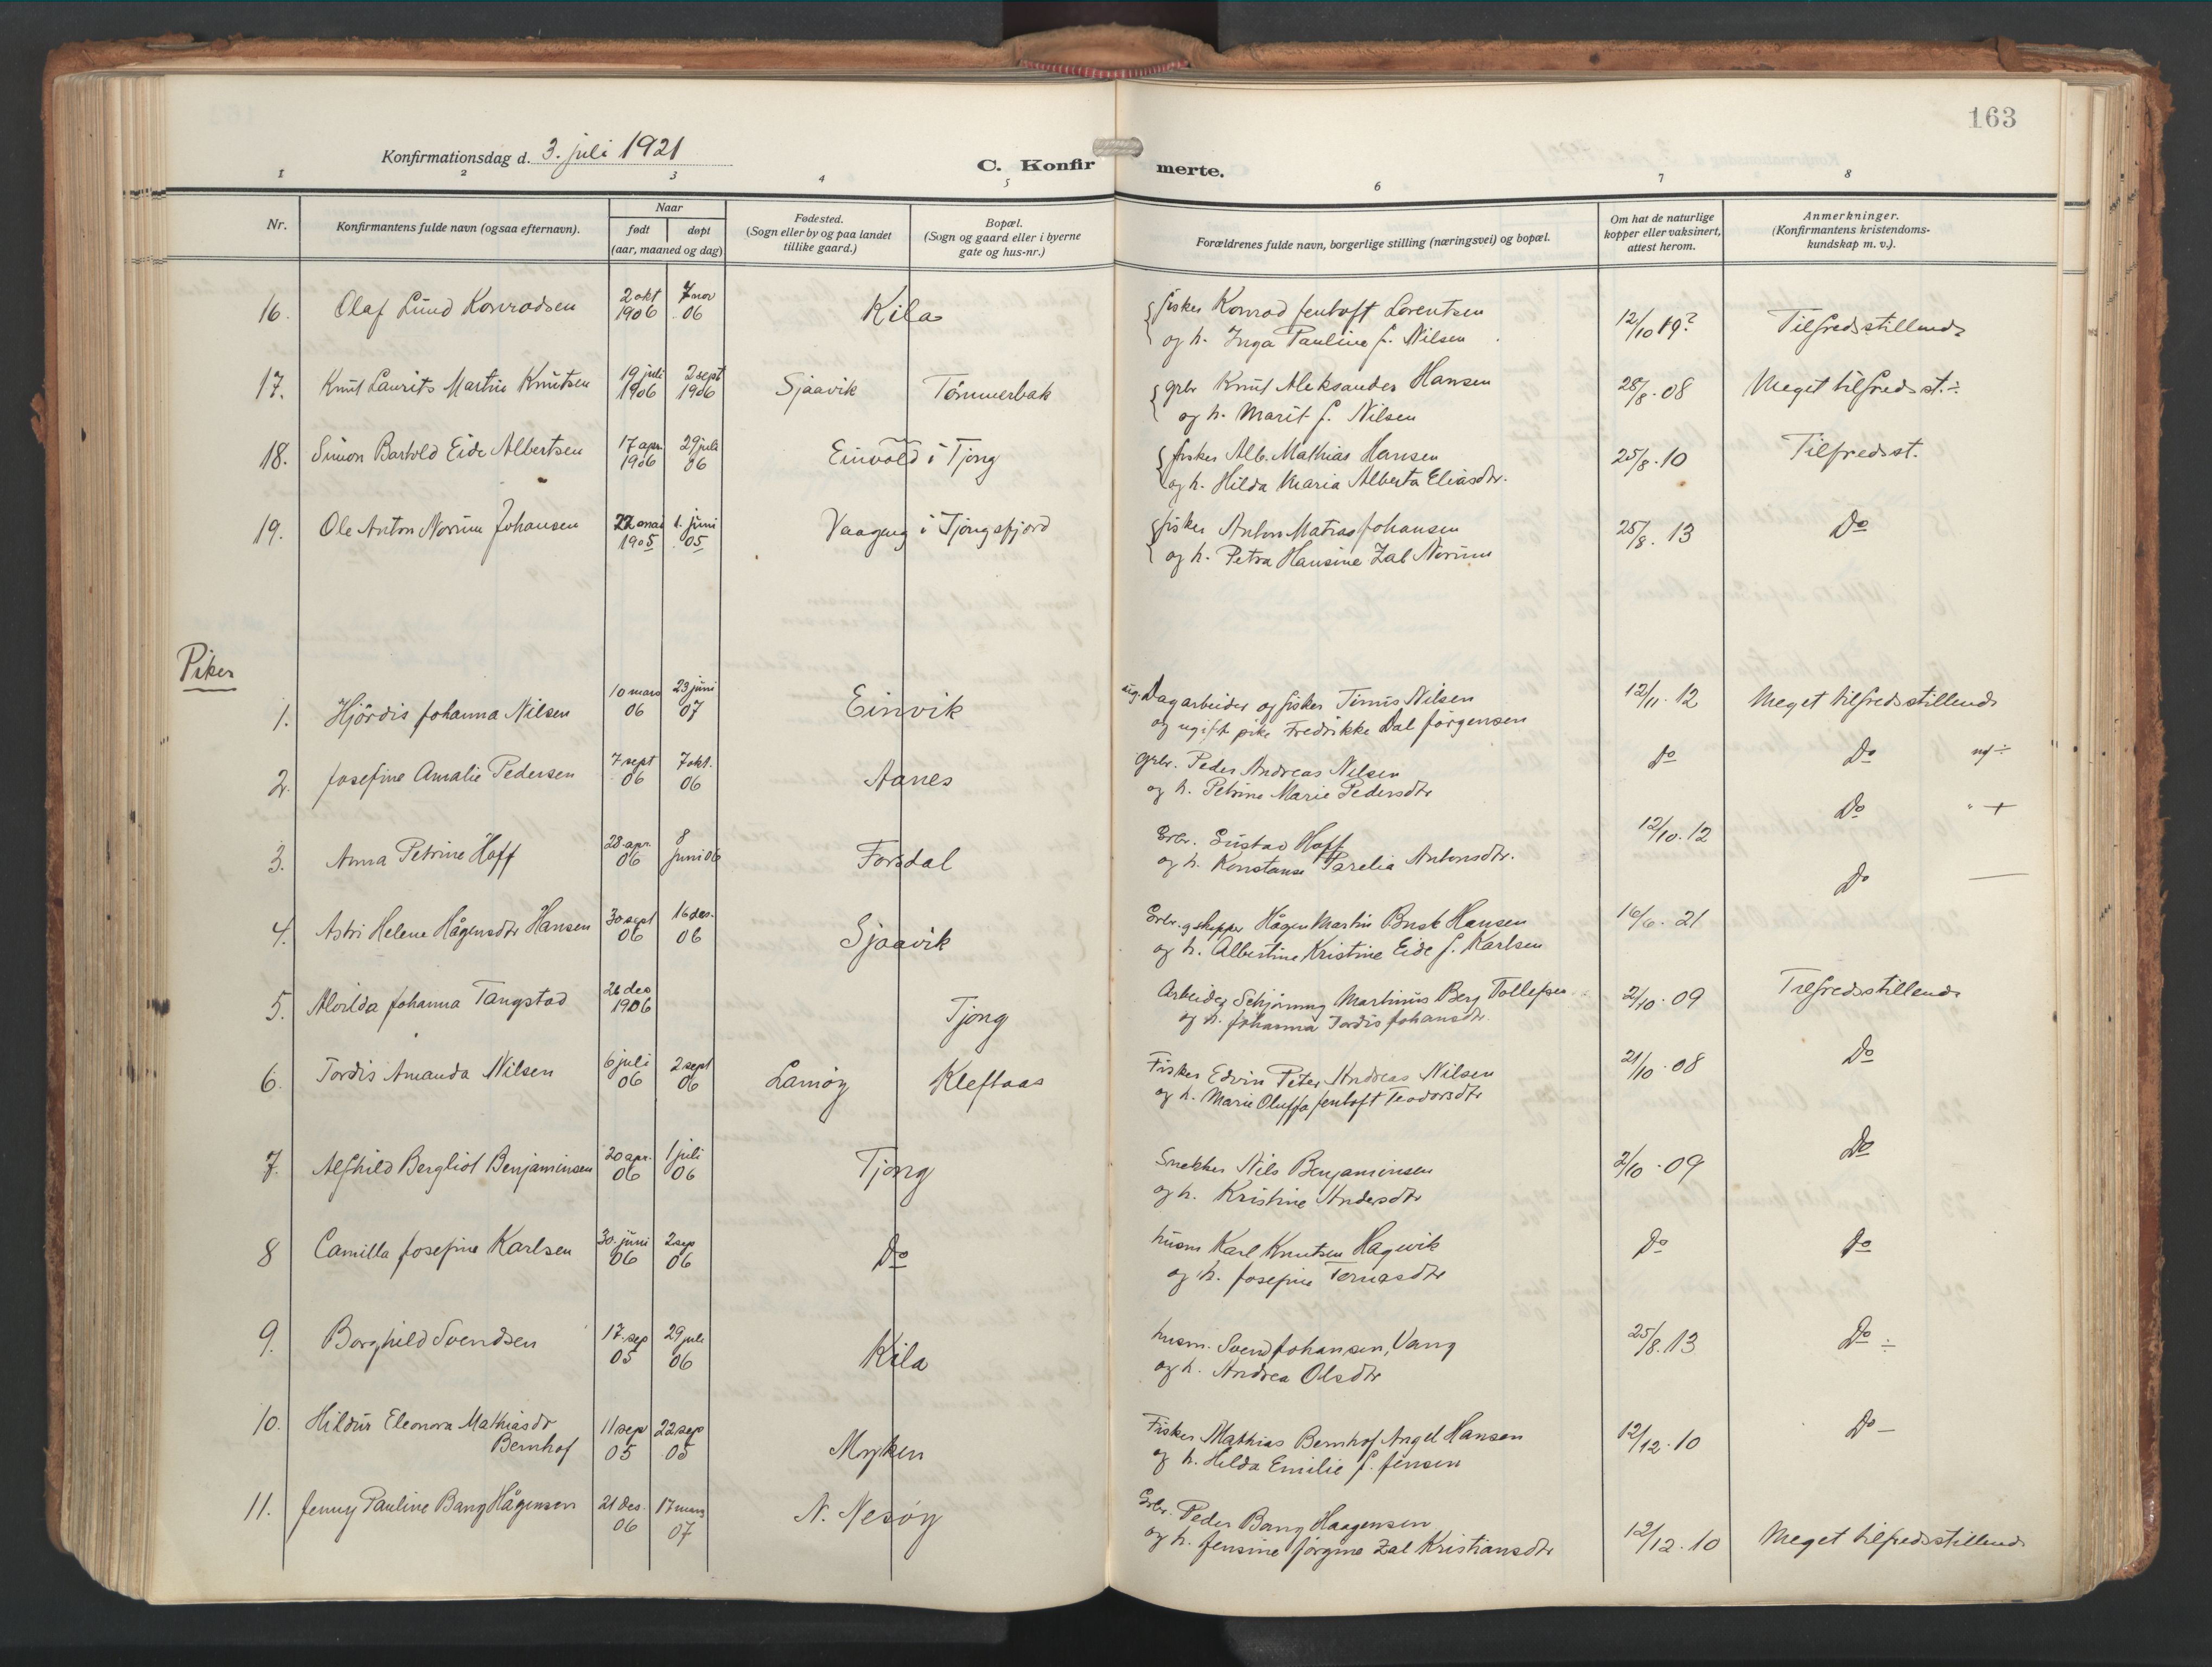 163
Konfirmationsdag d. 3. juli 1921
C. Konfirmerte.
1 2 3 4 5 6 7 8
Nr.
Konfirmantens fulde navn (ogsaa efternavn).
Naar
født døpt
(aar, maaned og dag)
Fødested.
(Sogn eller by og paa landet
tillike gaard.)
Bopæl.
(Sogn og gaard eller i byerne
gate og hus-nr.)
Forældrenes fulde navn, borgerlige stilling (næringsvei) og bopæl.
Om hat de naturlige
kopper eller vaksinert,
attest herom.
Anmerkninger.
(Konfirmantens kristendoms-
kundskap m. v.).
16. Olaf Lund Konradsen 2 okt 1906 7 nov 06 Kila
fisker Konrad Jentoft Lorentsen
og h. Inga Pauline f. Nilsen
12/10 19? Tilfredsstillende
17. Knut Laurits Martin Knutsen 19 juli 1906 2 sept 1906 Sjaavik Tömmerbak
grbr Knut Aleksander Hansen
og h. Marit f. Nilsen
28/8. 08 Meget tilfredsst. ÷
18. Simon Bartold Eide Albertsen 17 apr. 1906 29 juli 06 Einvold i Tjong
fisker Alb. Mathias Hansen
og h. Hilda Maria Alberta Eliasdtr.
25/8. 10 Tilfredsst.
19. Ole Anton Norum Johansen 22 mai 1905 1. juni 05 Vaageng i Tjongsfjord
fisker Anton Matias Johansen
og h. Petra Hansine Zal Norum
25/8. 13 Do
Piker
1. Hjördis Johanna Nilsen 10 mars 06 23 juni 07 Einvik
ug. Dagarbeider og fisker Tinius Nilsen
og ugift pike Fredrikke Dal Jörgensen
12/11. 12 Meget tilfredsstillende
2. Josefine Amalie Pedersen 7 sept 06 7 okt. 06 Aanes
grbr. Peder Andreas Nilsen
og h. Petrine Marie Pedersdtr
Do Do ÷
3. Anna Petrine Hoff 28 apr. 06 8 juni 06 Forsdal
Grbr. Gustav Hoff
og h. Konstanse Parelia Antonsdtr.
12/10. 12 Do " +
4. Astri Helene Hågensdtr Hansen 30 sept 06 16 des. 06 Sjaavik
Grbr. og skipper Hågen Martin Busk Hansen
og h. Albertine Kristine Eide f. Karlsen
16/6. 21 Do —
5. Alvilda Johanna Tangstad 26 des 1906 Tjong
Arbeider Schjönning Martinus Berg Tollefsen
og h. Johanna Tordis Johansdtr.
2/10. 09 Tilfredsstillende
6. Tordis Amanda Nilsen 6 juli 06 2 sept 06 Lamöy Kleftaas
Fisker Edvin Peter Andreas Nilsen
og h. Marie Oluffa Jentoft Teodorsdtr
21/10. 08 Do
7. Alfhild Bergliot Benjaminsen 20 apr. 06 1 juli 06 Tjong
Snekker Nils Benjaminsen
og h. Kristine Andersdtr
2/10. 09 Do
8 Camilla Josefine Karlsen 30. juni 06 2 sep 06 Do
husm Karl Knutsen Hagevik
og h. Josefine Tomasdtr
Do Do
9. Borghild Svendsen 17. sep 05 29 juli 06 Kila
husm. Svend Johansen, Vang
og h. Andrea Olsdtr
25/8. 13 Do ÷
10. Hildur Eleonora Mathiasdtr
Bernhof 11 sep 05 22 sep 05 Myken
Fisker Mathias Bernhof Angel Hansen
og h. Hilda Emilie f. Jensen
12/12. 10 Do —
11. Jenny Pauline Bang Hågensen 21 des. 06 17 mars 07 N. Nesöy
Grbr. Peder Bang Haagensen
og h. Jensine Jörgine Zal Kristiansdtr
12/12. 10 Meget tilfredsstillende